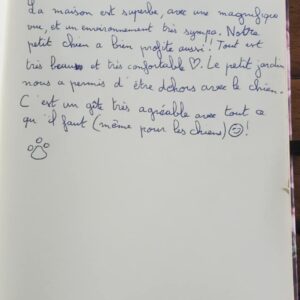 La maison est superbe, avec une magnifique
vue, et un environnement très sympa. Notre
petit chien a bien profité aussi! Tout est
très beau et très confortable ♡. Le petit jardin
nous a permis d'être dehors avec le chien.
C'est un gîte très agréable avec tout ce
qu'il faut (même pour les chiens) ☺!